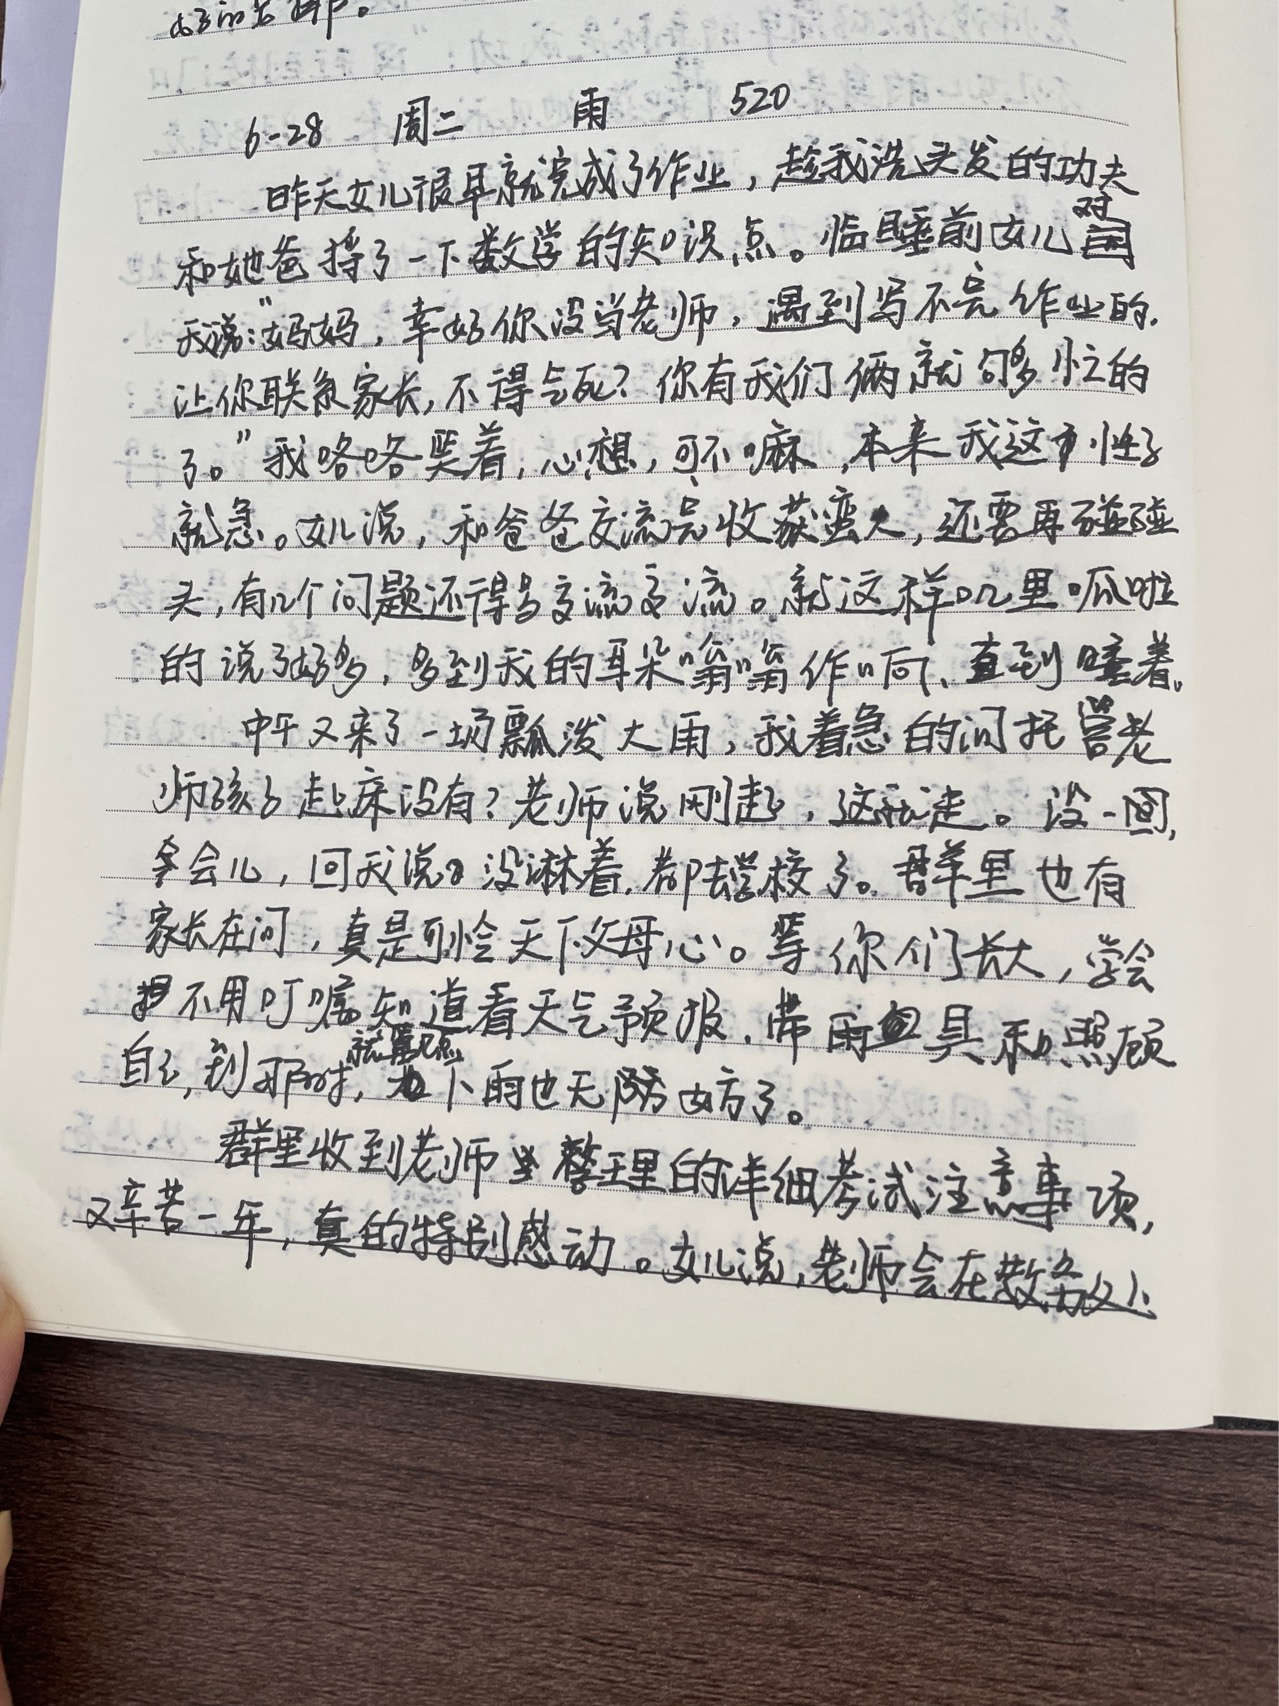 6-28 周二 雨 520
昨天女儿很早就完成了作业，趁我洗头发的功夫
和她爸捋了一下数学的知识点。临睡前女儿对
我说："妈妈，幸好你没当老师，遇到写不完作业的，
让你联系家长，不得气死？你有我们俩就够忙的
了。"我咯咯笑着，心想，可不嘛，本来我这个性子
就急。女儿说，和爸爸交流完收获蛮大，还要再碰碰
头，有几个问题还得多交流交流。就这样叽里呱啦
的说了好多，多到我的耳朵嗡嗡作响、直到睡着。
中午又来了一场瓢泼大雨，我着急的问托管老
师孩子起床没有？老师说刚起，这就走。没一
多会儿，回我说没淋着，都去学校了。群里也有
家长在问，真是可怜天下父母心。等你们长大，学会
不用叮嘱知道看天气预报，带雨具和照顾
自己，到那时，就算是下雨也无防妨了。
群里收到老师整理的详细考试注意事项，
又辛苦一年，真的特别感动。女儿说，老师会在教务处